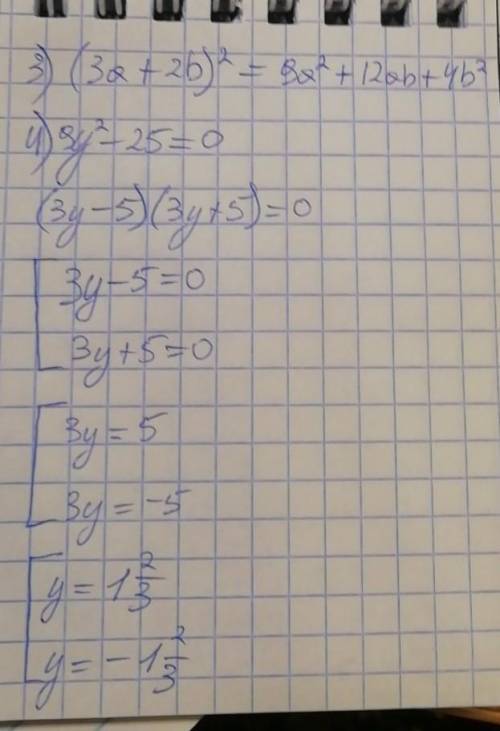 3) (3a + 2b)² = 9a² + 12ab + 4b²
4) 9y² - 25 = 0
(3y - 5)(3y + 5) = 0
3y - 5 = 0
3y + 5 = 0
3y = 5
3y = -5
y = 1 2/3
y = -1 2/3